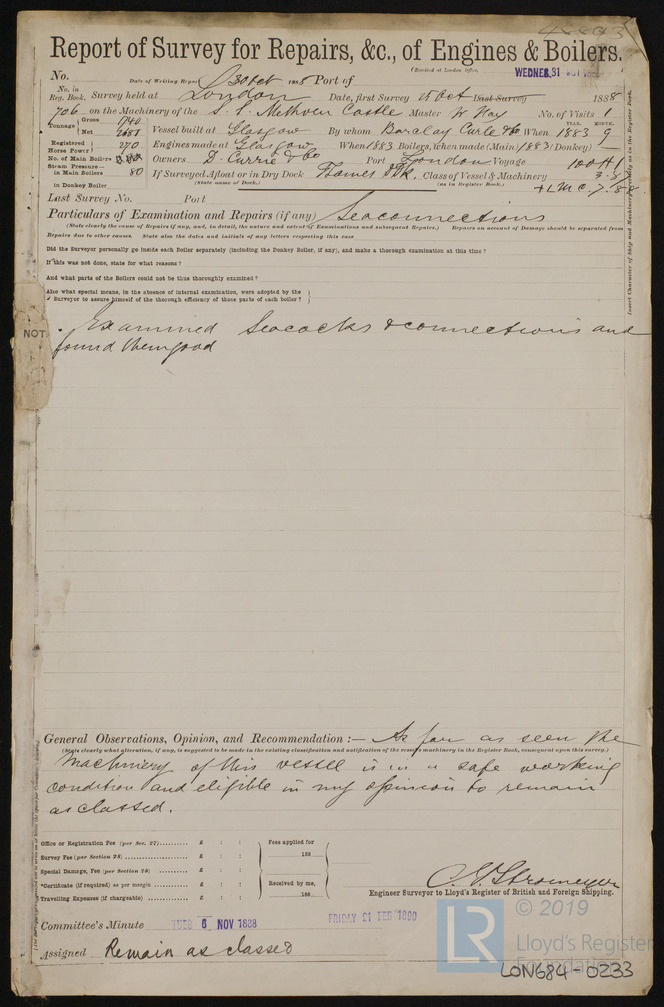 48843
Report of Survey for Repairs, &c., of Engines & Boilers.
No. Date of Writing Report 30 Oct 1888 Port of (Received at London Office, WEDNES. 31 OCT 1888
No. in Reg. Book. Survey held at London Date, first Survey 25 Oct Last Survey 1888
706 on the Machinery of the S. S. Methven Castle Master W Hay No. of Visits 1
Tonnage Gross Net 2681 Vessel built at Glasgow By whom Barclay Curle & Co When YEAR. 1883 MONTH. 9
Registered Horse Power 270 Engines made at Glasgow When 1883 Boilers, when made (Main) 1883 (Donkey)
No. of Main Boilers Owners D. Currie & Co Port London Voyage
Steam Pressure in Main Boilers 80 If Surveyed Afloat or in Dry Dock Thames Dk. Class of Vessel & Machinery 100 A 1
in Donkey Boiler (State name of Dock.) (as in Register Book.) + LMC. 7.88
Last Survey No. Port
Particulars of Examination and Repairs (if any) Seaconnections
(State clearly the cause of Repairs if any, and, in detail, the nature and extent of Examinations and subsequent Repairs.) Repairs on account of Damage should be separated from
Repairs due to other causes. State also the dates and initials of any letters respecting this case
Did the Surveyor personally go inside each Boiler separately (including the Donkey Boiler, if any), and make a thorough examination at this time?
If this was not done, state for what reasons?
And what parts of the Boilers could not be thus thoroughly examined?
Also what special means, in the absence of internal examination, were adopted by the
Surveyor to assure himself of the thorough efficiency of those parts of each boiler?
Insert Character of Ship and Machinery precisely as in the Register Book.
NOT
Examined Seacocks & connections and
found them good
General Observations, Opinion, and Recommendation :— As far as seen the
(State clearly what alteration, if any, is suggested to be made in the existing classification and notification of the vessel's machinery in the Register Book, consequent upon this survey.)
machinery of this vessel is in a safe working
condition and eligible in my opinion to remain
as classed.
Office or Registration Fee (per Sec. 27) £ : : Fees applied for
Survey Fee (per Section 28) £ : : 188
Special Damage, Fee (per Section 29) £ : :
*Certificate (if required) as per margin £ : : Received by me,
Travelling Expenses (if chargeable) £ : : 188
C. E. Stromeyer
Engineer Surveyor to Lloyd's Register of British and Foreign Shipping.
Committee's Minute TUES 6 NOV 1888 FRIDAY 21 FEB 1890
Assigned Remain as classed
LR © 2019
Lloyd's Register
Foundation
LON684-0233